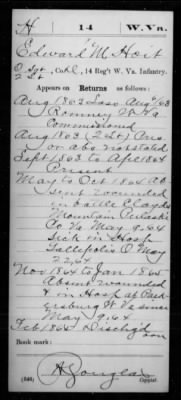 H 14 W.Va.
Edward M Hoit
Co H., 14 Reg't W. Va. Infantry.
Appears on Returns as follows:
Aug 1863 Loss Aug 6/63
Romney W Va
Commissioned
Aug 1863 (2 Lt) Pres
or abs not stated
Sept 1863 to Apr 1864
Present
May to Oct 1864 Ab
sent wounded
in battle Cloyds
Mountain Pulaski
Co Va May 9. 64
Sick in Hosp
Gallipolis O May
22, 64
Nov 1864 to Jan 1865
Absent wounded
& in Hosp at Park
ersburg W Va since
May 9. 64
Feb 1865 Dischg'd
Book mark:
(546) Copyist.